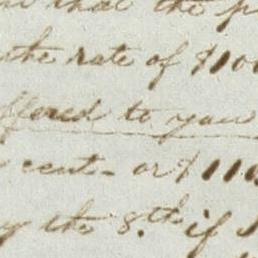 that the
the rate of $100
offered to you
cent - or $110
by the 8.th if